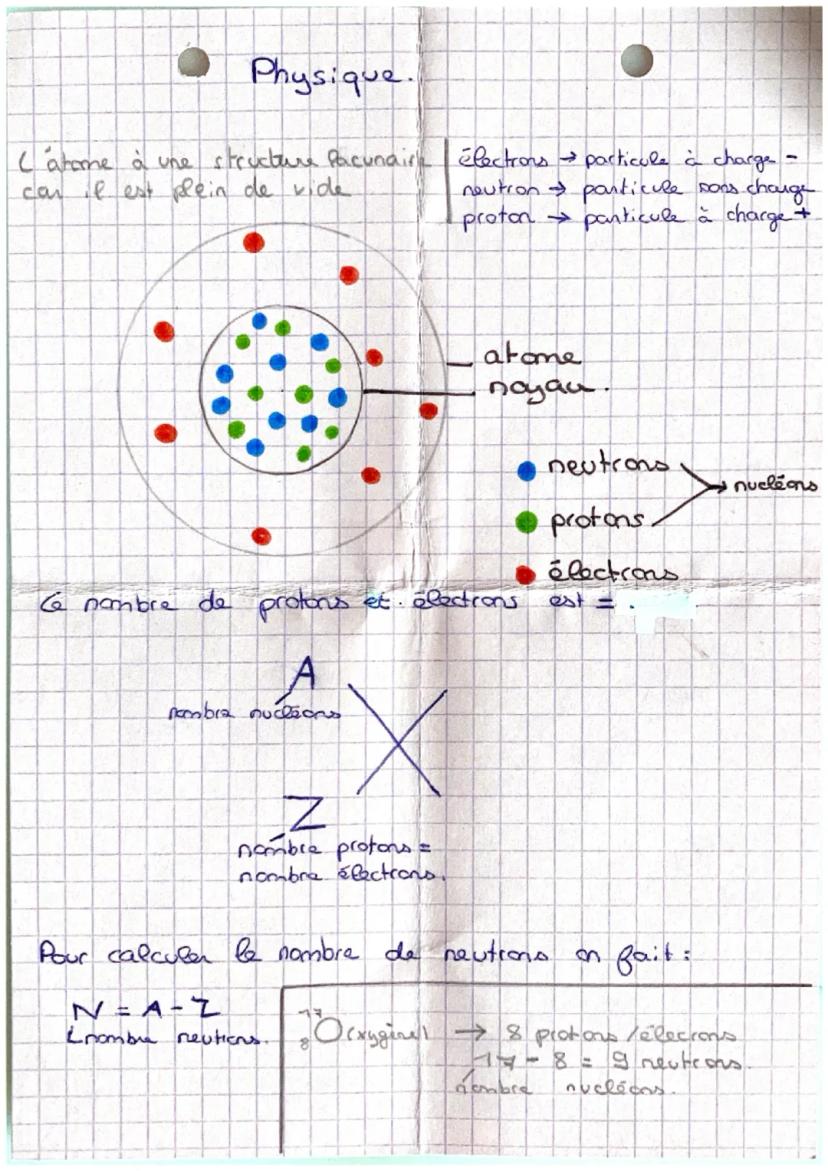 Physique.
L'atome à une structure lacunaire
car il est plein de vide
électrons → particule à charge -
neutron → particule sans charge
proton → particule à charge +
atome
noyau.
neutrons
→ nucléons
protons
électrons
Le nombre de protons et électrons est = .
A
nombre nucléons
X
Z
nombre protons =
nombre électrons.
Pour calculer le nombre de neutrons on fait :
N = A - Z
nombre neutrons.
17
8 O(xygène) → 8 protons / élecrons
17 - 8 = 9 neutrons.
nombre nucléons.